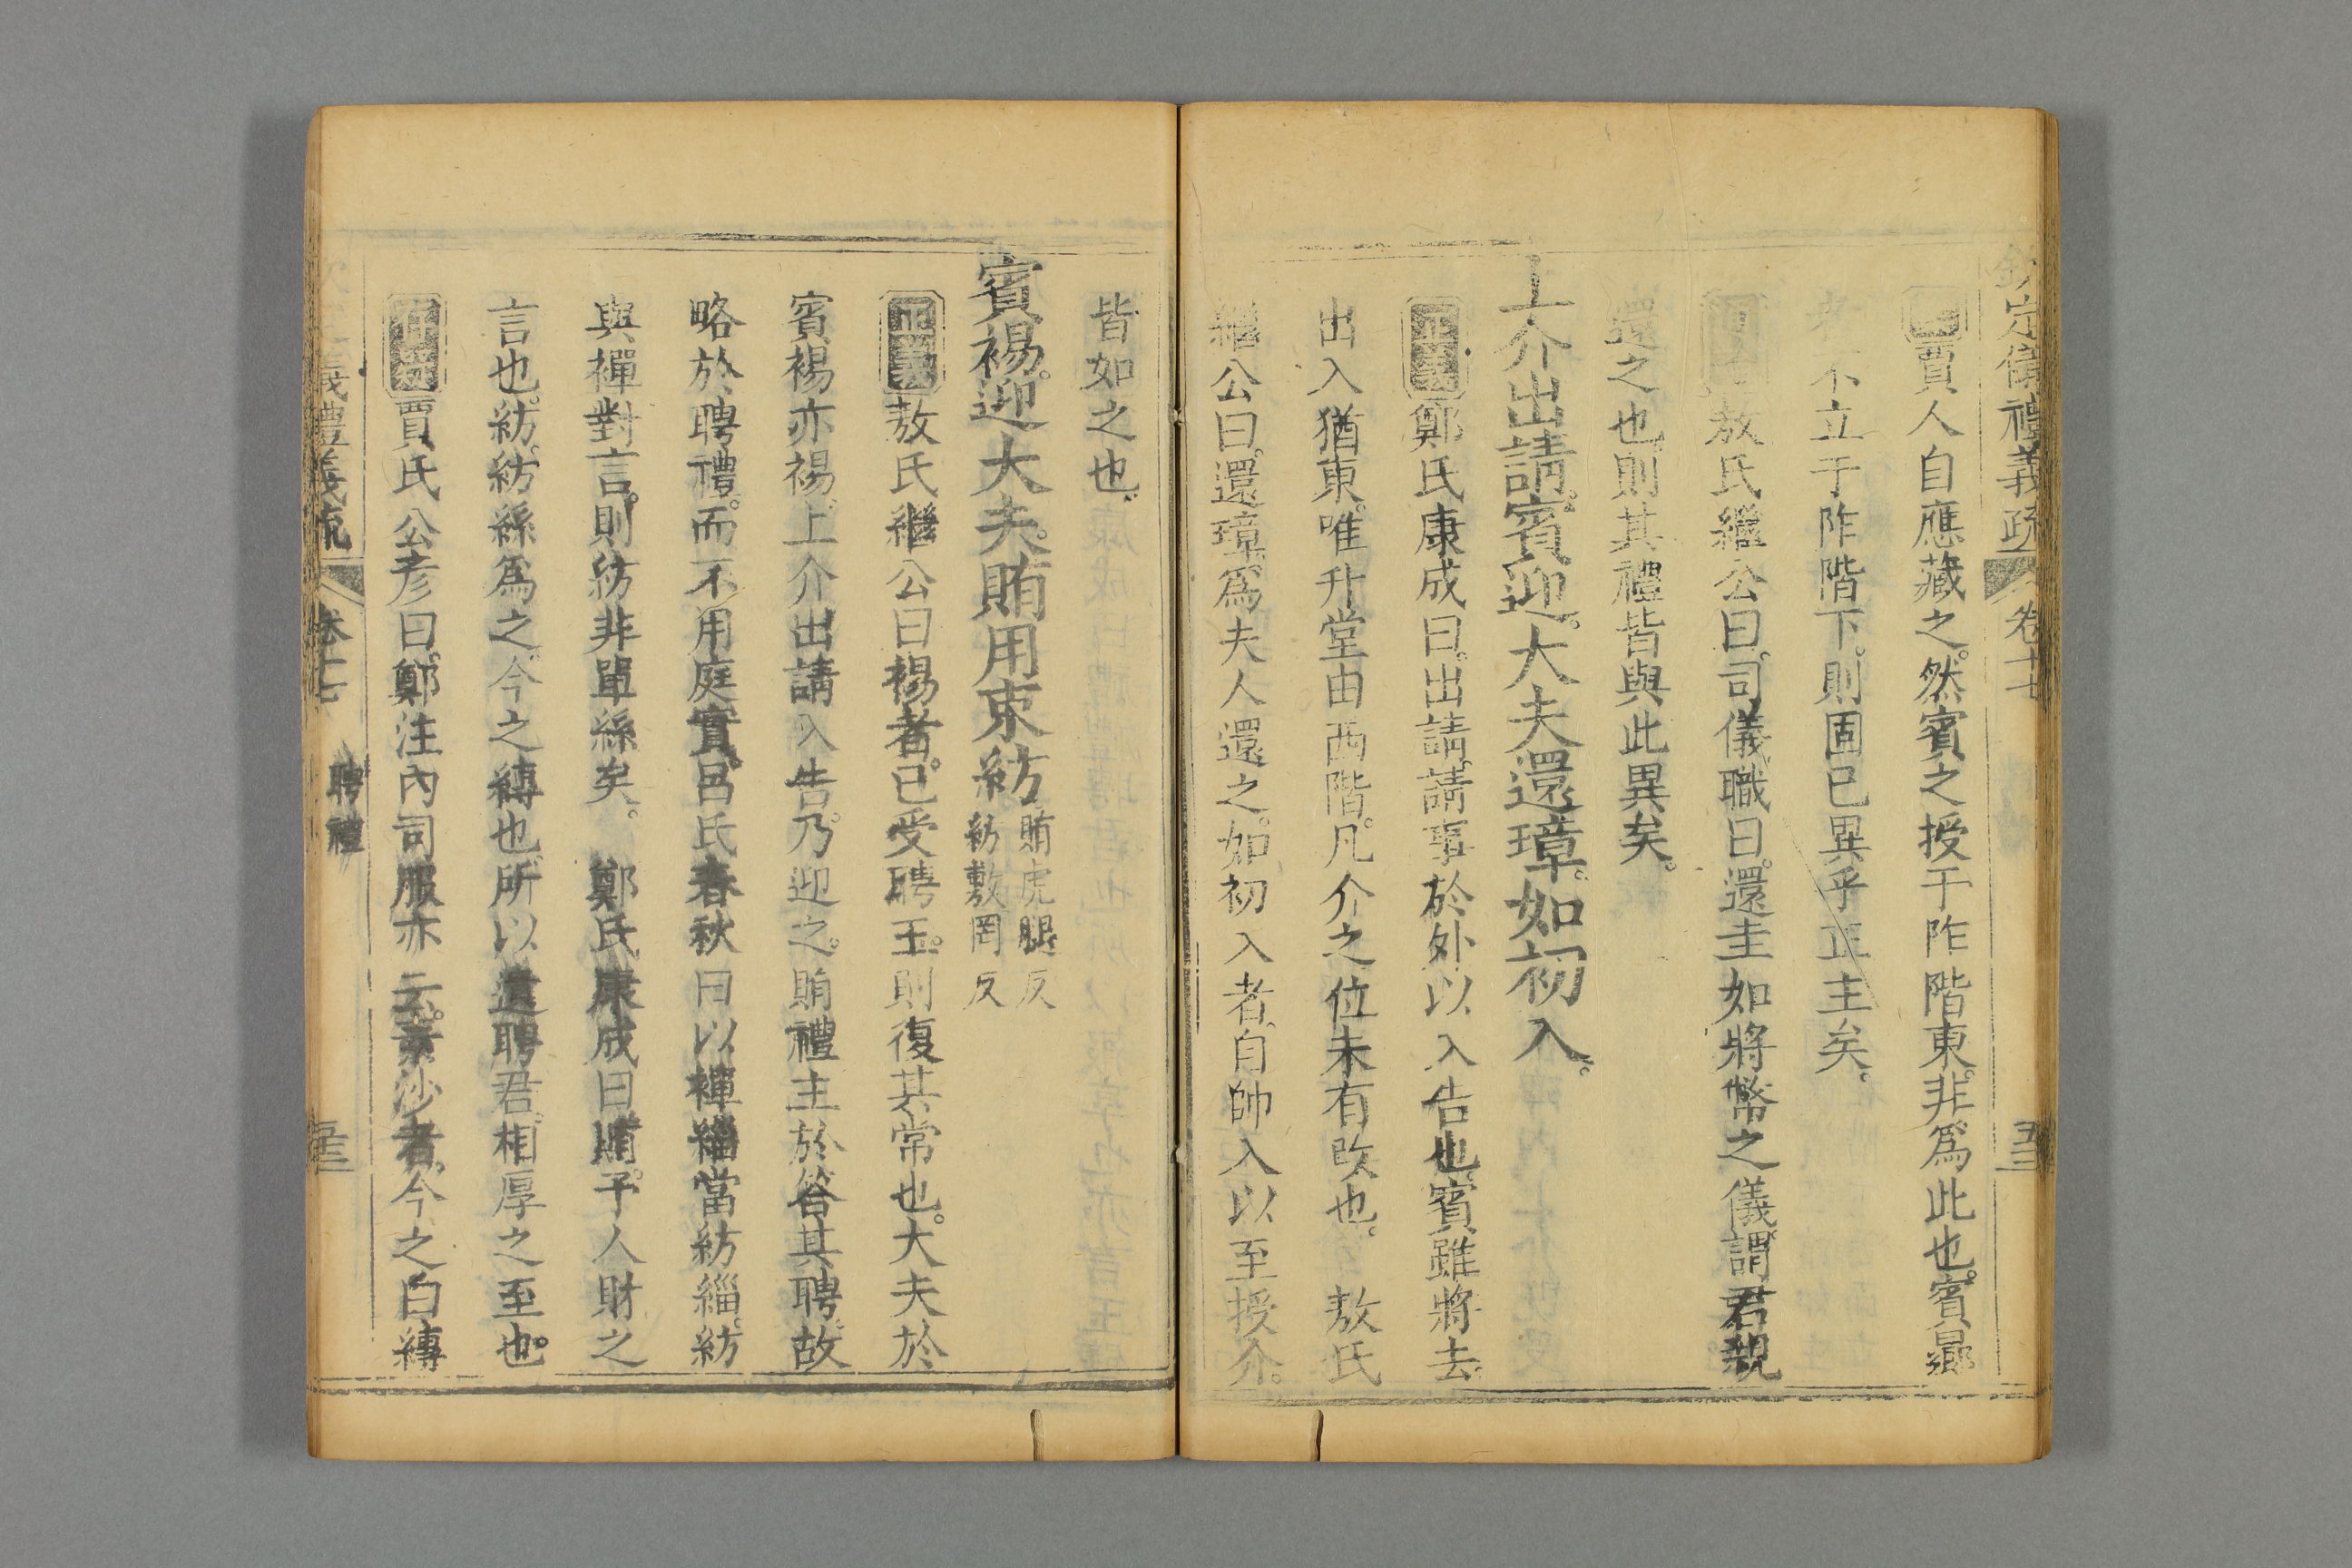 欽定儀禮義疏 卷十七 五三
賈人自應藏之。然賓之授于阼階東。非爲此也。賓鄉
不立于阼階下。則固已異乎正主矣。
敖氏繼公曰。司儀職曰。還圭如將幣之儀。謂君親
還之也。則其禮皆與此異矣。
上介出請。賓迎。大夫還璋。如初入。
正義鄭氏康成曰。出請。請事於外以入告也。賓雖將去。
出入猶東。唯升堂由西階。凡介之位未有改也。 敖氏
繼公曰。還璋。爲夫人還之。如初入者。自帥入以至授介。
皆如之也。
賓裼。迎大夫。賄用束紡
賄虎腿反
紡敷罔反
正義敖氏繼公曰。裼者。已受聘玉。則復其常也。大夫於
賓裼亦裼。上介出請入告。乃迎之。賄禮主於答其聘。故
略於聘禮。而不用庭實。呂氏春秋曰以襌緇當紡緇。紡
與襌對言。則紡非單絲矣。 鄭氏康成曰賄。予人財之
言也。紡。紡絲爲之。今之縳也。所以遺聘君。相厚之至也。
賈氏公彥曰。鄭注內司服亦云。素沙者。今之白縳
儀禮義疏 卷十七 聘禮 五三